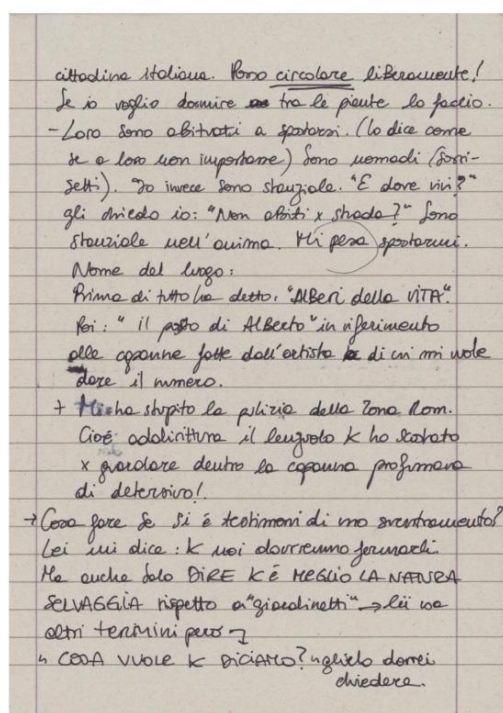 cittadina italiana. Posso circolare liberamente!
Se io voglio dormire tra le piante lo faccio.
- Loro sono abituati a spostarsi. (lo dice come
se a loro non importasse) Sono nomadi (sorri-
setti). Io invece sono stanziale. "E dove vivi?"
gli chiedo io: "Non abiti x strada?" Sono
stanziale nell'anima. Mi pesa spostarmi.
Nome del luogo:
Prima di tutto ha detto: "ALBERI della VITA".
Poi: "il posto di ALBERTO" in riferimento
alle capanne fatte dall'artista di cui mi vuole
dare il numero.
+ Mi ha stupito la pulizia della zona Rom.
Cioè addirittura il lenzuolo k ho scostato
x guardare dentro la capanna profumava
di detersivo!
→ Cosa fare se si è testimoni di uno sventramento?
Lei mi dice: k noi dovremmo fermarli.
Ma anche solo DIRE K È MEGLIO LA NATURA
SELVAGGIA rispetto ai "giardinetti" → lei usa
altri termini però
COSA VUOLE K DICIAMO? glielo dovrei
chiedere.